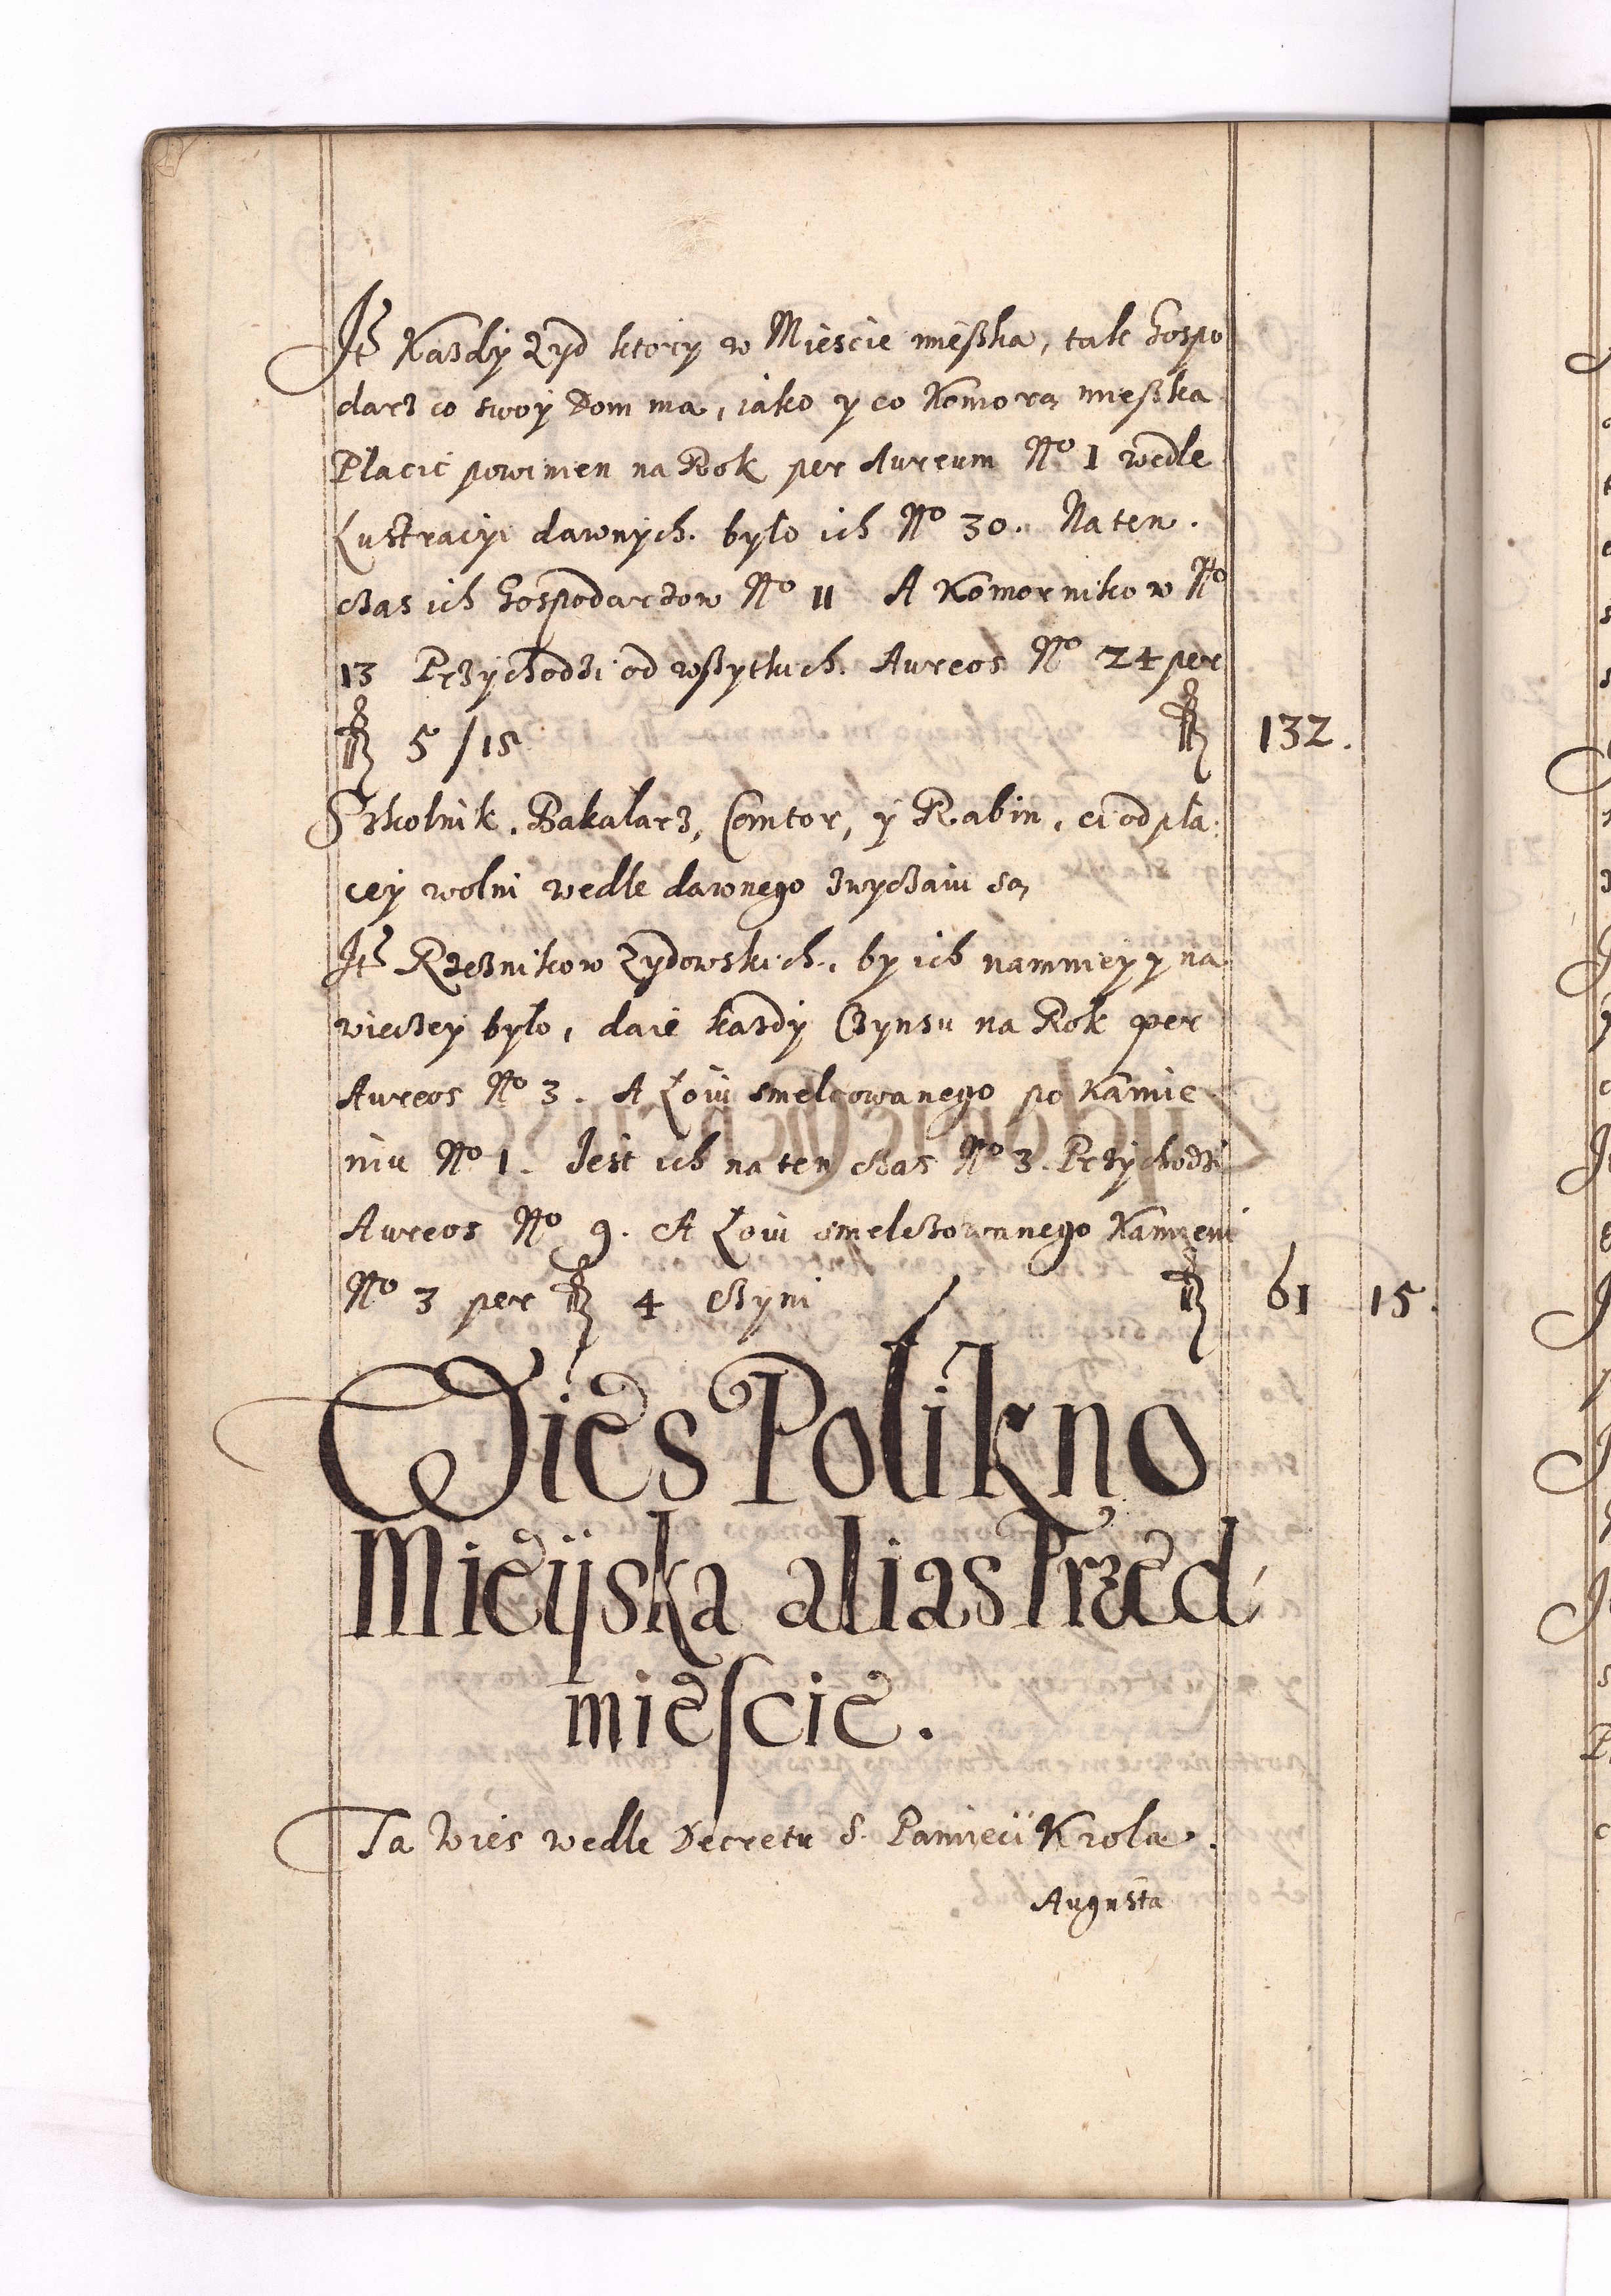 Itē Kazdy Zyd ktory w Miescie mießka, tak Gospo
darz co swoy Dom ma, iako y co Komorą mießka
Płacic powinien na Rok per Aureum No 1 wedle
Lustracyi dawnych. było ich No 30. Na ten.
czas ich Gospodarzow No 11 A Komornikow No
13 Przychodzi od wßytkich. Aureos No 24 per
fl 5 / 15 fl 132.
Szkolnik, Bakałarz, Cantor, y Rabin, ci od pła
cey wolni wedle dawnego zwyczaiu są
Itē Rzeznikow Zydowskich, by ich namniey y na
wieczey było, daie kazdy Czynsu na Rok per
Aureos No 3. A Łoiu smelcowanego po Kamie
niu No 1. Jest ich na ten czas No 3. Przychodzi
Aureos No 9. A Łoiu smelczowanego Kamieni
No 3 per fl 4 czyni fl 61 15.
Wies Polikno
Mieijska alias Przed
miescie.
Ta Wies wedle Decretu S. Pamieci Krola.
Augusta